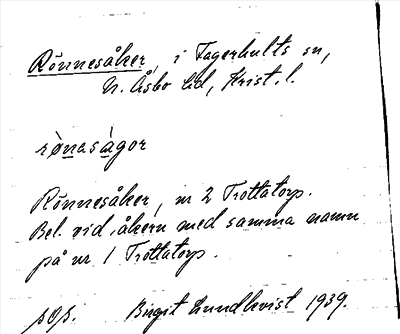 Rönnesåker, i Fagerhults sn,
N. Åsbo hd, Krist. l.
rònasàgor
Rönnesåker, nr 2 Trottatorp.
Bel. vid åkern med samma namn
på nr 1 Trottatorp.
Birgit Lundkvist 1939.